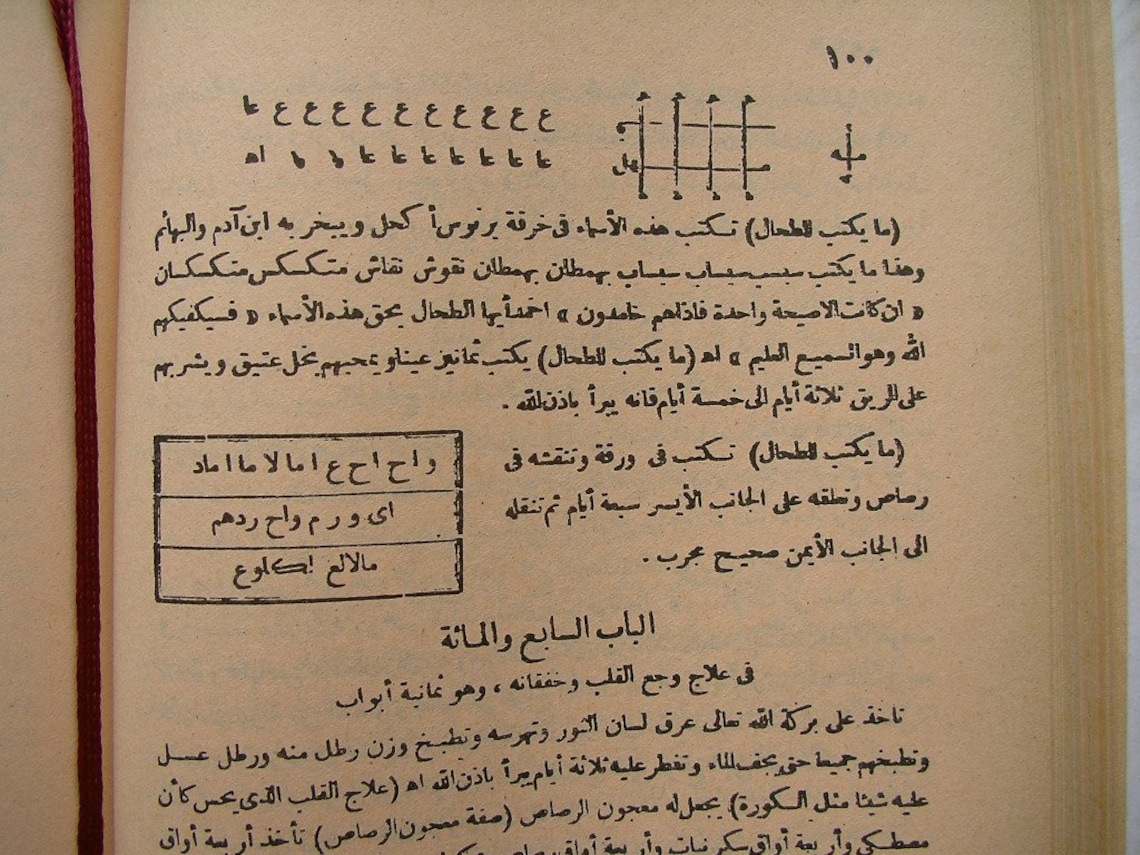 ١٠٠
ع ع ع ع ع ع ع ع ع ع عا
عا عا عا عا عا عا عا
(ما يكتب للطحال) تكتب هذه الأسماء فى خرقة برنوس أ كحل ويبخر به ابن آدم والبهائم
وهذا ما يكتب سبسب سيساب سيساب بهمطان بهمطان نقوش نقاش متكسكس متكسكسان
« ان كانت الاصيحة واحدة فاذاهم خامدون » اخمد أيها الطحال بحق هذه الأسماء « فسيكفيكهم
الله وهو السميع العليم » اه (ما يكتب للطحال) يكتب ثمانين عينا ويمحيهم بخل عتيق ويشربهم
على الريق ثلاثة أيام الى خمسة أيام فانه يبرأ باذن الله .
(ما يكتب للطحال) تكتب فى ورقة وتنقشه فى
رصاص وتعلقه على الجانب الأيسر سبعة أيام ثم تنقله
الى الجانب الأيمن صحيح مجرب .
و اح اح ع اما لا ما اماد
اى و ر م واح ردهم
مالالع
الباب السابع والمائة
فى علاج وجع القلب وخفقانه ، وهو ثمانية أبواب
تاخذ على بركة الله تعالى عرق لسان الثور وتهرسه وتطبخ وزن رطل منه ورطل عسل
وتطبخهم جميعا حتى يجف الماء وتفطر عليه ثلاثة أيام يبرأ باذن الله اه (علاج القلب الذى يحس كأن
عليه شيئا مثل الكورة) يجعل له معجون الرصاص (صفة معجون الرصاص) تأخذ أربعة أواق
مصطكى وأربعة أواق سكر نبات وأربعة أواق